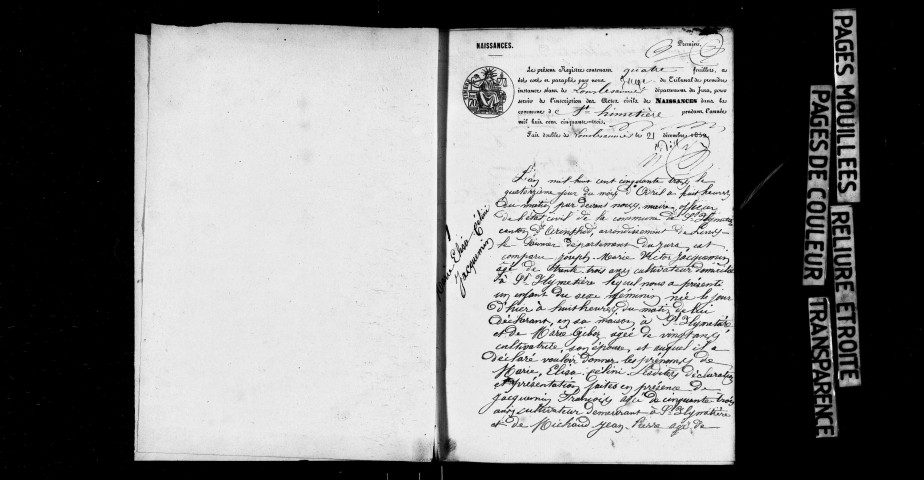 NAISSANCES.
Premier
Le présent Registre contenant quatre feuillets, a
été coté et paraphé par nous Juge du Tribunal de première
instance séant de Lonslesaunier département du Jura, pour
servir de l'inscription des Actes civils de NAISSANCES dans la
commune d St himetière pendant l'année
mil huit cent cinquante-trois.
Fait double de Lonslesaunier le 21 décembre 1852
L'an mil huit cent cinquante trois le
quatorzième jour du mois d'Avril à huit heures
du matin par devant nous, maire officier
de l'état civil de la commune de St Hymetière
canton d'Orinthod, arrondissement de Lons-
le Saunier département du Jura, est
comparu Joseph Marie Victor Jacquemin
âgé de trente trois ans cultivateur domicilié
à St Hymetière lequel nous a présenté
un enfant du sexe féminin née le jour
d'hier à huit heures du matin de lui
déclarant, en sa maison à St Hymetière
et de Marie agée de vingt ans
cultivatrice, son épouse, et auquel il a
déclaré vouloir donner les prénoms de
Marie, Elisa Célini Lesdites déclaration
et présentation faites en présence de
Jacquemin François agé de cinquante trois
ans cultivateur demeurant à St Hymetière
et de Michaud Jean Pierre agé de
Marie Elisa Célini
Jacquemin
PAGES MOUILLEES RELIURE ETROITE
PAGES DE COULEUR TRANSPARENCE